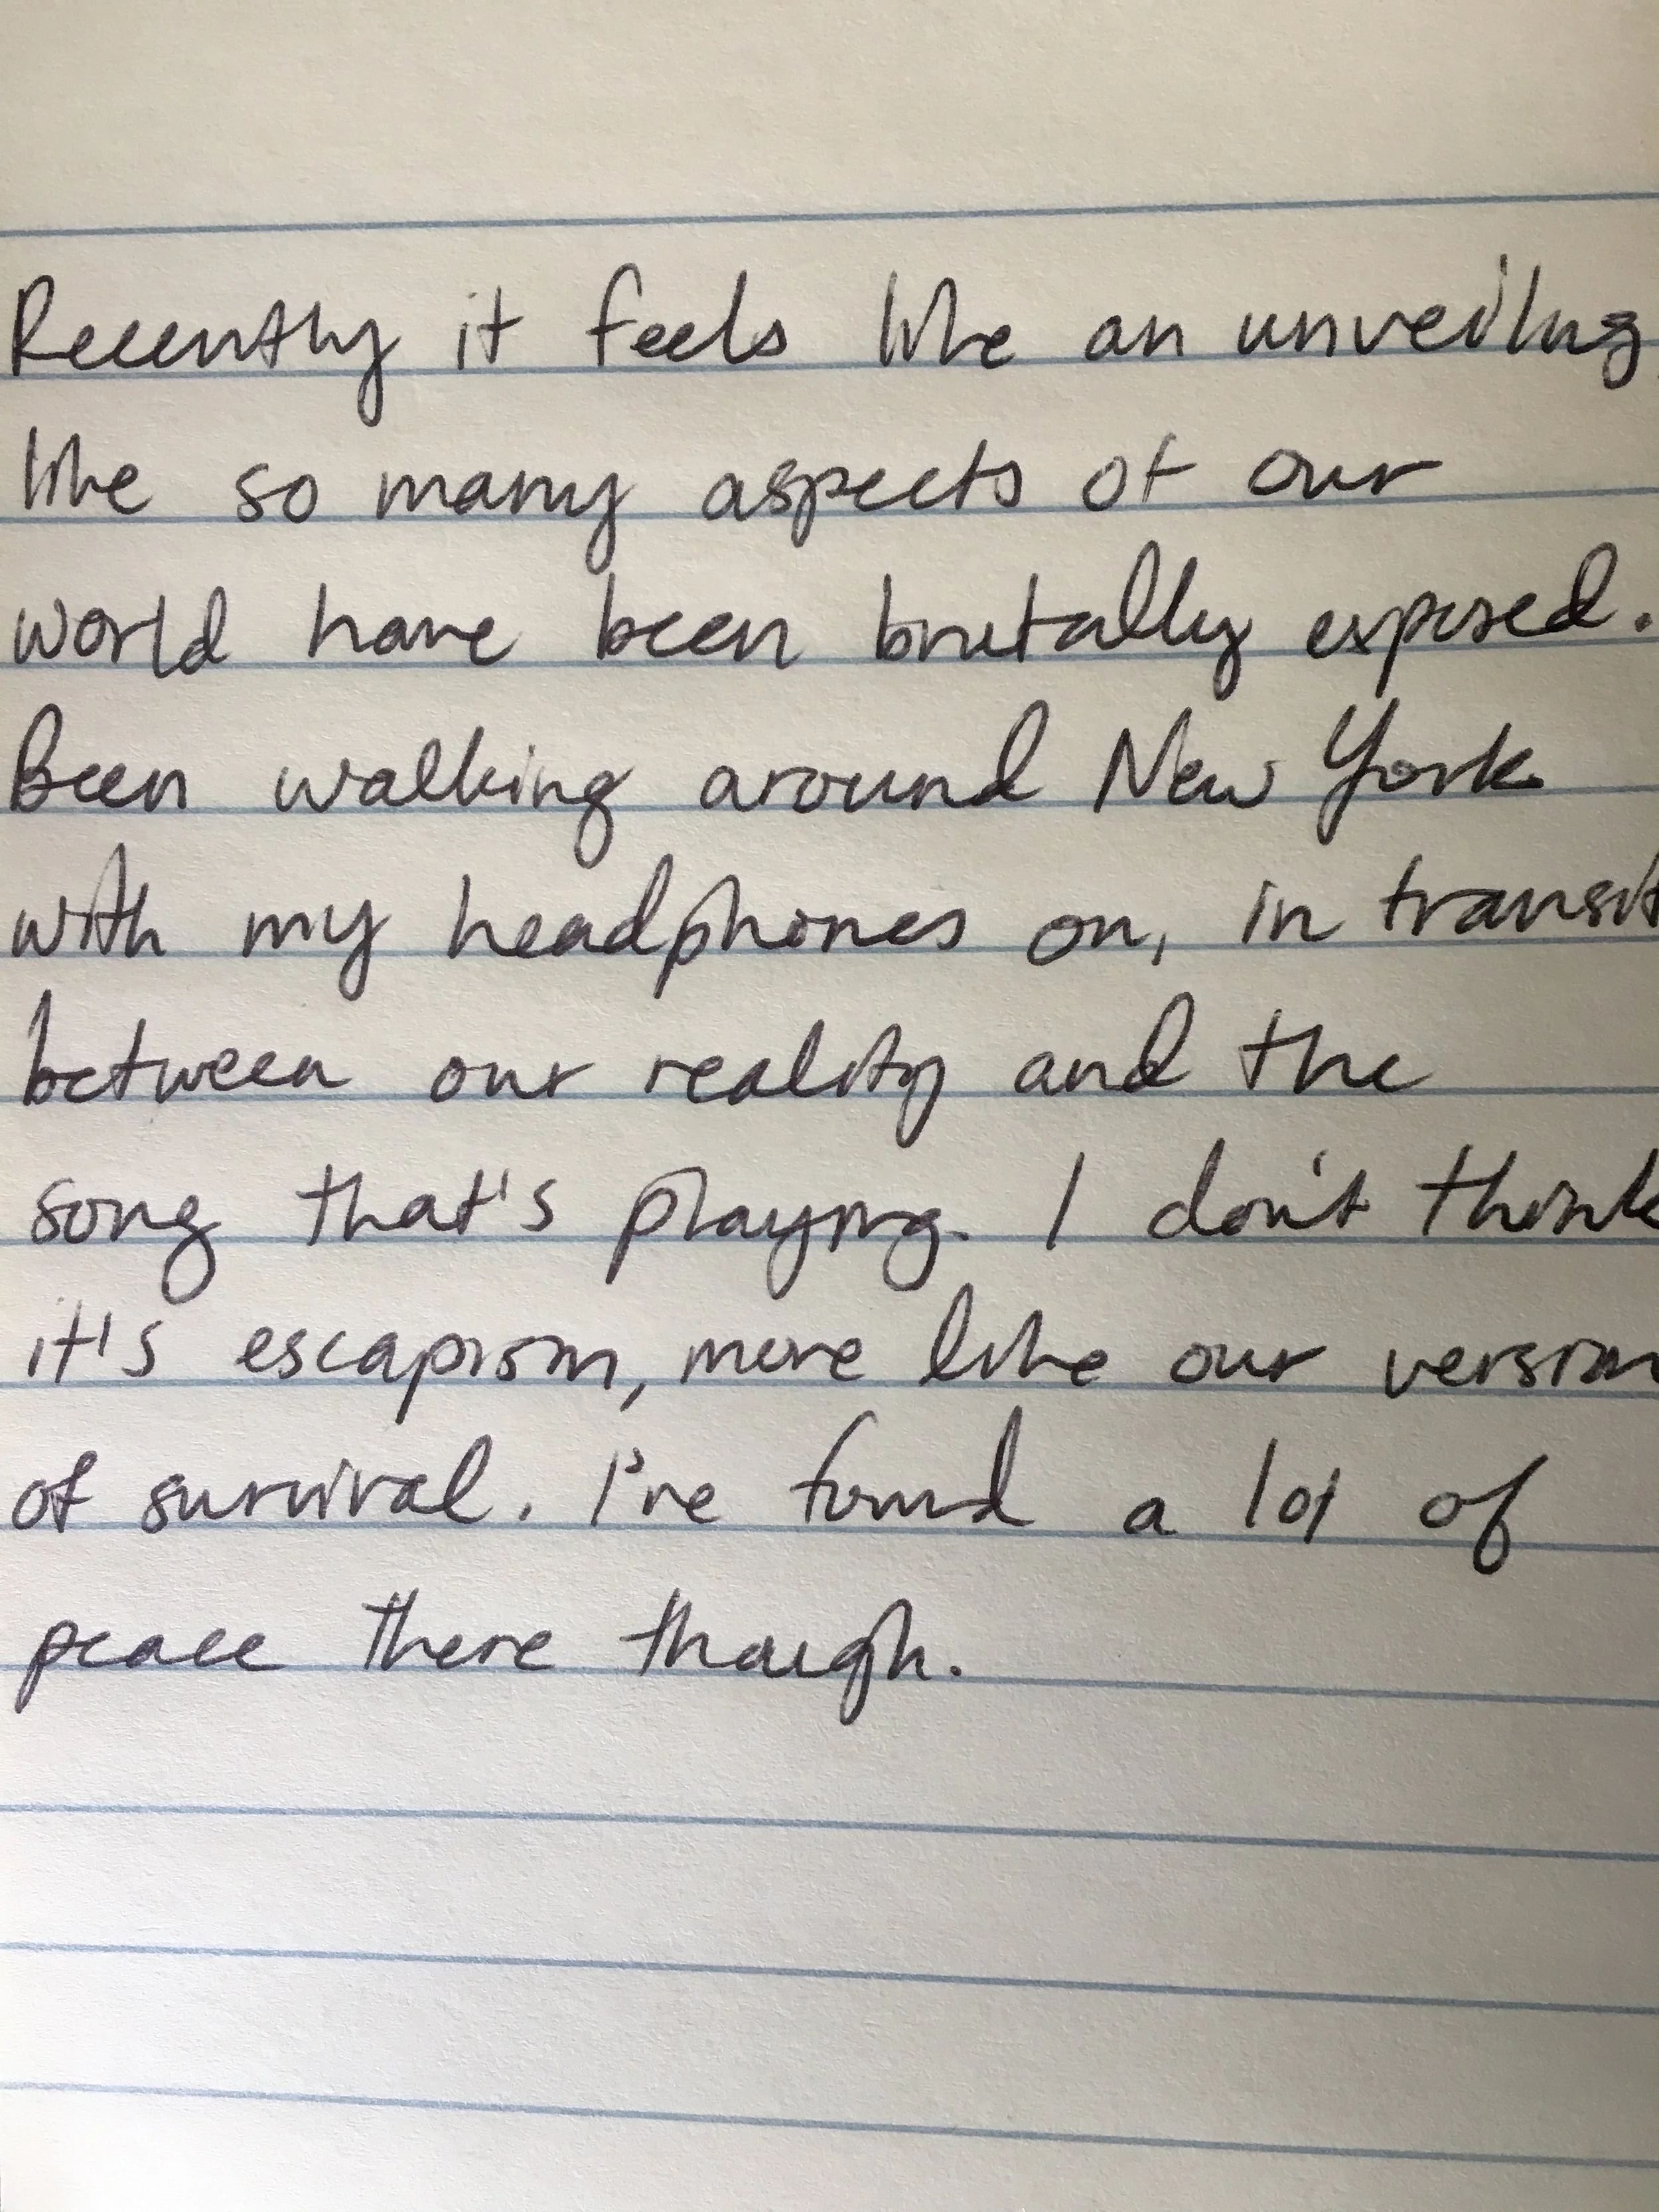 Recently it feels like an unveiling,
like so many aspects of our
world have been brutally exposed.
Been walking around New York
with my headphones on, in transit
between our reality and the
song that's playing. I don't think
it's escapism, more like our version
of survival. I've found a lot of
peace there though.